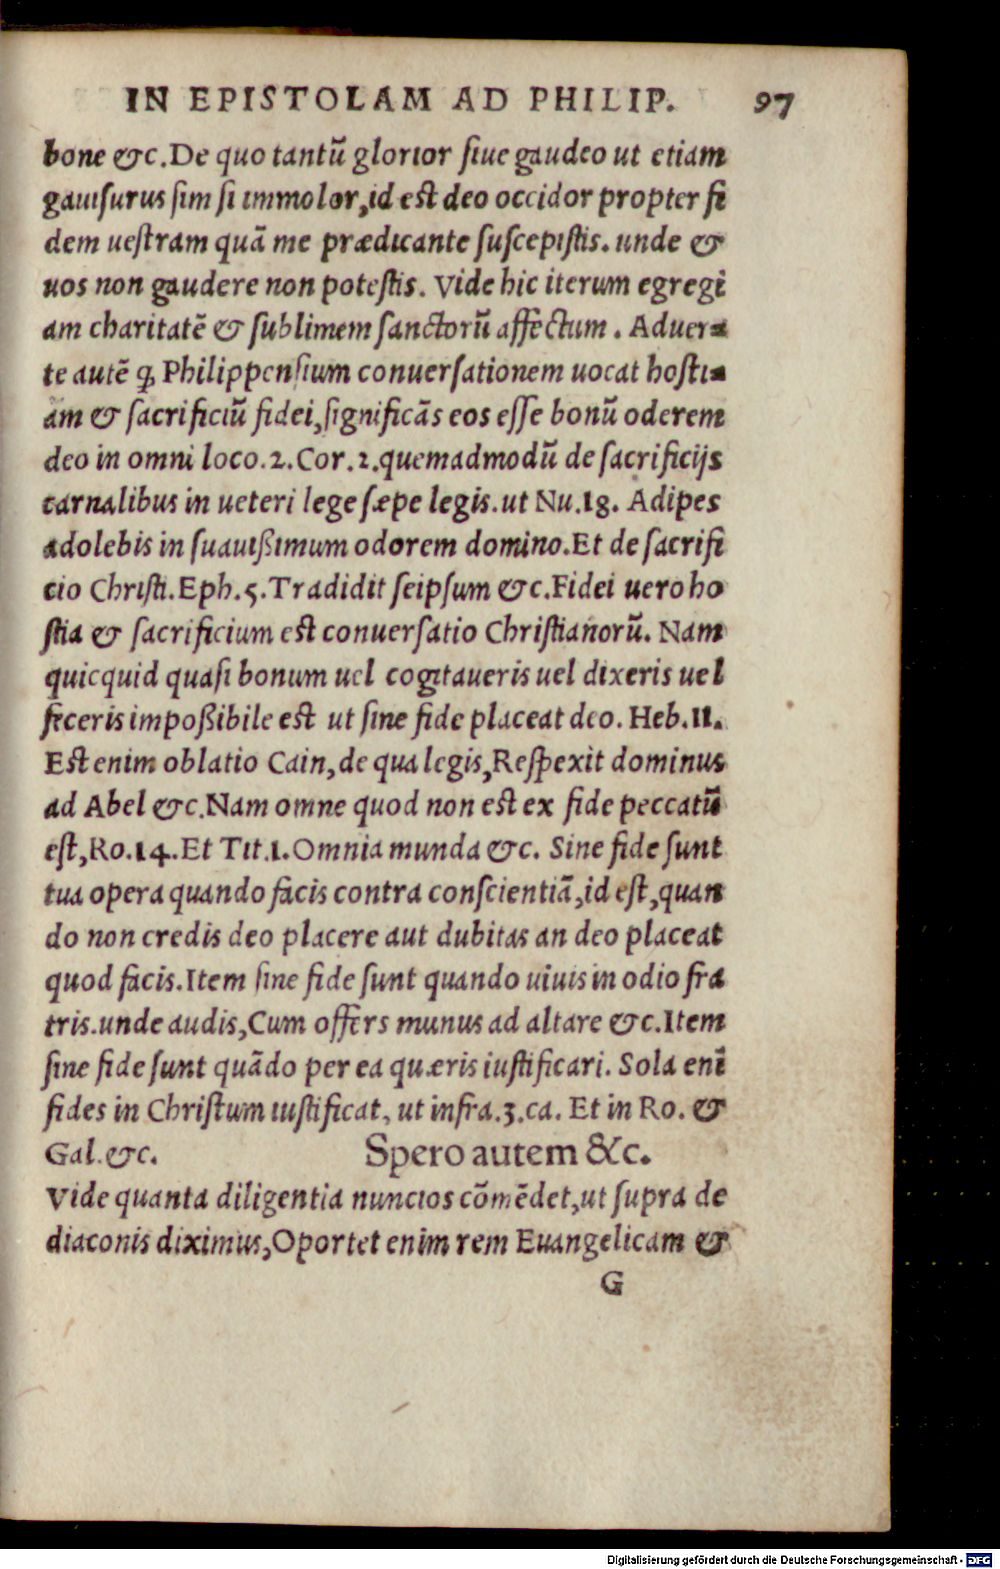 IN EPISTOLAM AD PHILIP. 97
bone &c. De quo tantũ glorior siue gaudeo ut etiam
gauisurus sim si immolor, id est deo occidor propter fi
dem uestram quã me prædicante suscepistis. unde &
uos non gaudere non potestis. Vide hic iterum egregi
am charitatẽ & sublimem sanctorũ affectum. Aduer-
te autẽ ꝙ Philippensium conuersationem uocat hosti-
am & sacrificiũ fidei, significãs eos esse bonũ oderem
deo in omni loco. 2. Cor. 2. quemadmodũ de sacrificijs
carnalibus in ueteri lege sæpe legis. ut Nu. 18. Adipes
adolebis in suauißimum odorem domino. Et de sacrifi
cio Christi. Eph. 5. Tradidit seipsum &c. Fidei uero ho
stia & sacrificium est conuersatio Christianorũ. Nam
quicquid quasi bonum uel cogitaueris uel dixeris uel
feceris impoßibile est ut sine fide placeat deo. Heb. 11.
Est enim oblatio Cain, de qua legis, Respexit dominus
ad Abel &c. Nam omne quod non est ex fide peccatũ
est, Ro. 14. Et Tit. 1. Omnia munda &c. Sine fide sunt
tua opera quando facis contra conscientiã, id est, quan
do non credis deo placere aut dubitas an deo placeat
quod facis. Item sine fide sunt quando uiuis in odio fra
tris. unde audis, Cum offers munus ad altare &c. Item
sine fide sunt quãdo per ea quæris iustificari. Sola enĩ
fides in Christum iustificat, ut infra. 3. ca. Et in Ro. &
Gal. &c. Spero autem &c.
Vide quanta diligentia nuncios cõmẽdet, ut supra de
diaconis diximus, Oportet enim rem Euangelicam &
G
Digitalisierung gefördert durch die Deutsche Forschungsgemeinschaft - DFG